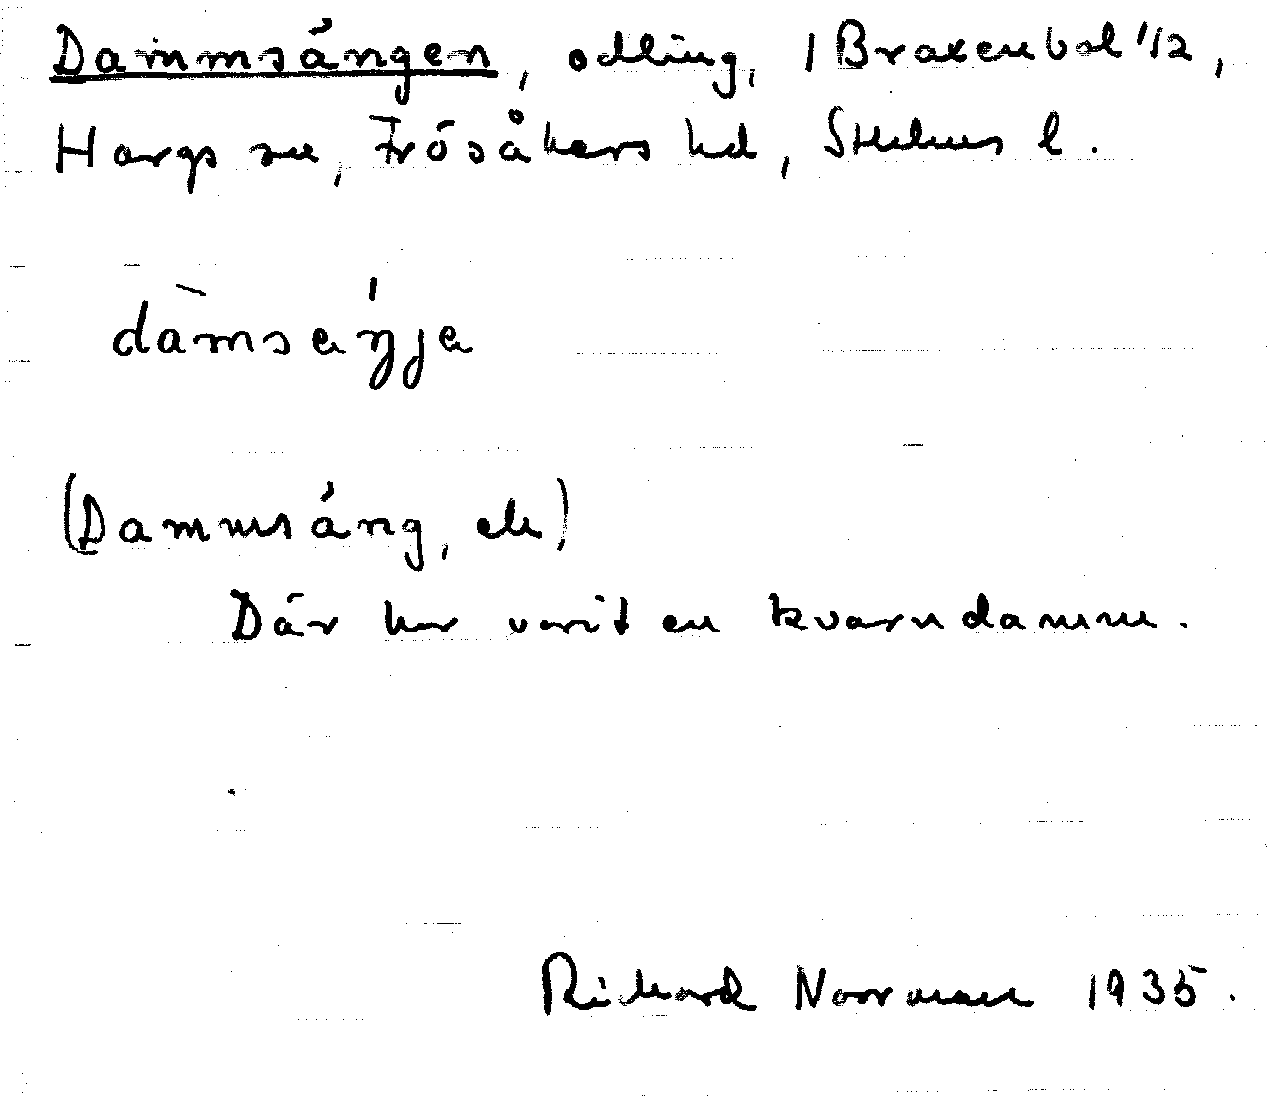 Dammsängen, odling, 1 Braxenbol 1/12,
Hargs sn, Frösåkers hd, Sthlms l.
dàmsaŋ́ja
(Dammsäng, -en)
Där har varit en kvarndamm.
Richard Norrman 1935.